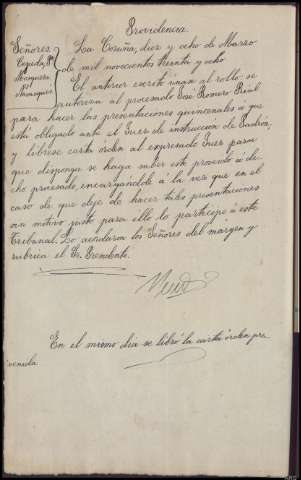 Providencia
Señores.
Cepeda, Pte
Mosquera
Marquez
La Coruña, diez y ocho de Marzo
de mil novecientos treinta y ocho
El anterior escrito únase al rollo se
autoriza al procesado José Romero Real
para hacer las presentaciones quincenales á que
está obligado ante el Juez de instrucción de Padrón,
y líbrese carta orden al expresado Juez para
que disponga se haga saber este proveido á di-
cho procesado, encargándole á la vez que en el
caso de que deje de hacer tales presentaciones
sin motivo justo para ello lo participe á este
Tribunal. Lo acordaron los Señores del margen y
rubrica el Sr. Presidente.
En el mismo día se libró la carta órden pre
venida